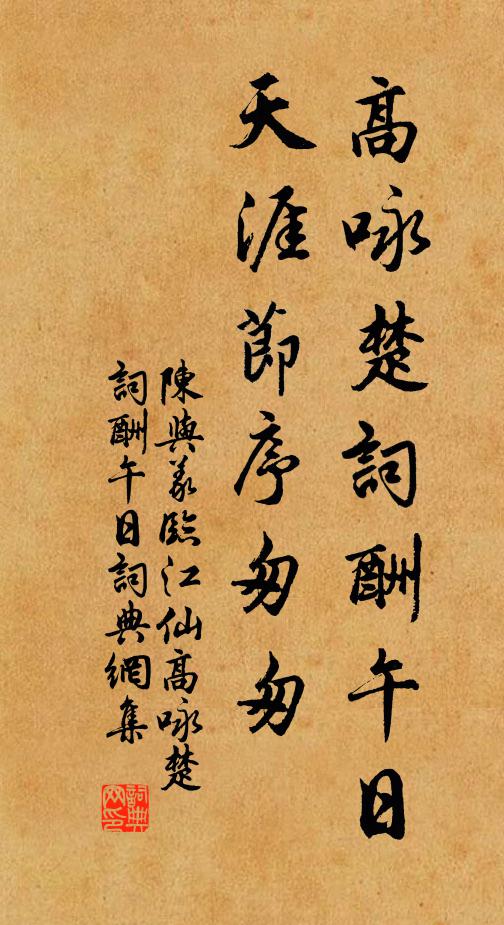 高咏楚詞酬午日
天涯節序匆匆
陳與義臨江仙高咏楚
詞酬午日詞典網集
詞典網印